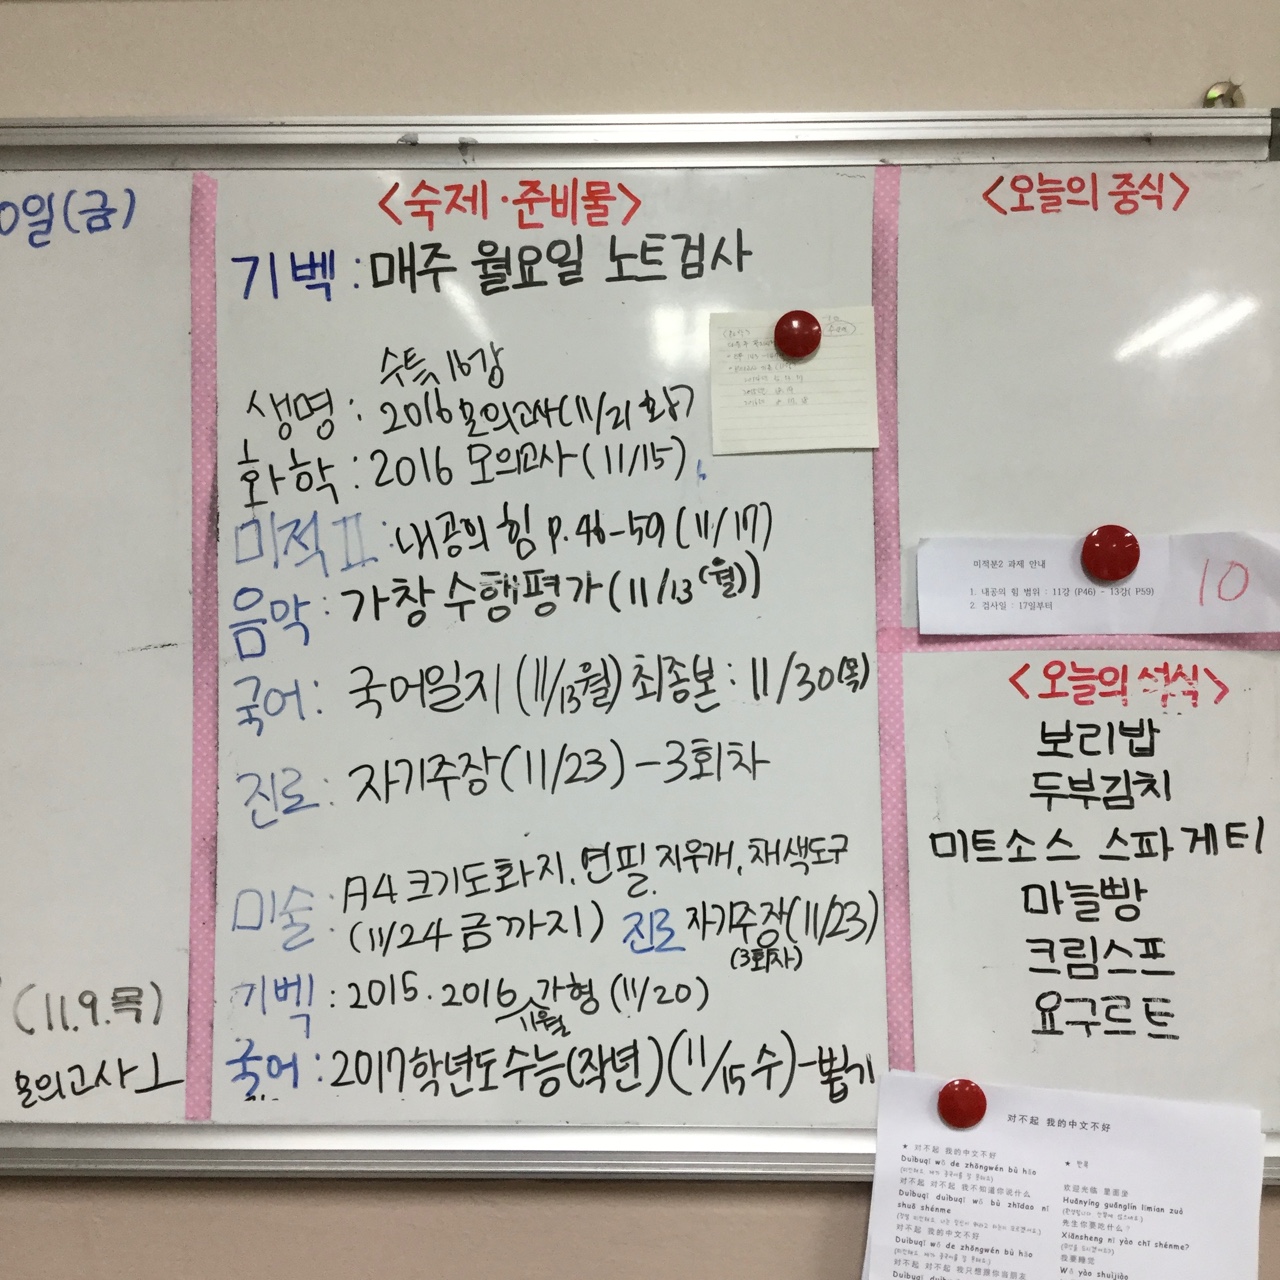 0일(금)
(11.9.목)
모의고사
<숙제·준비물>
기벡 : 매주 월요일 노트검사
수특 16강
생명 : 2016 모의고사(11/21 화)
화학 : 2016 모의고사(11/15)
미적Ⅱ : 내공의 힘 P.46-59(11/17)
음악 : 가창 수행평가(11/13(월))
국어 : 국어일지(11/13월) 최종본 : 11/30(목)
진로 : 자기주장(11/23)-3회차
미술 : A4크기도화지, 연필, 지우개, 채색도구
(11/24 금까지) 진로 자기주장(11/23)
(3회차)
기벡 : 2015. 2016 가형 (11/20)
11월
국어 : 2017학년도수능(작년)(11/15 수)-뽑기
<오늘의 중식>
미적분2 과제 안내
1. 내공의 힘 범위 : 11강 (P46) - 13강( P59)
2. 검사일 : 17일부터
10
<오늘의 석식>
보리밥
두부김치
미트소스 스파게티
마늘빵
크림스프
요구르트
对不起 我的中文不好
★ 对不起 我的中文不好
Duìbuqǐ wǒ de zhōngwén bù hǎo
对不起 对不起 我不知道你说什么
Duìbuqǐ duìbuqǐ wǒ bù zhīdao nǐ
shuō shénme
对不起 我的中文不好
Duìbuqǐ wǒ de zhōngwén bù hǎo
对不起 对不起 我只想跟你当朋友
欢迎光临 里面坐
Huānyíng guānglín lǐmian zuò
先生你要吃什么?
Xiānsheng nǐ yào chī shénme?
Wǒ yào shuìjiào